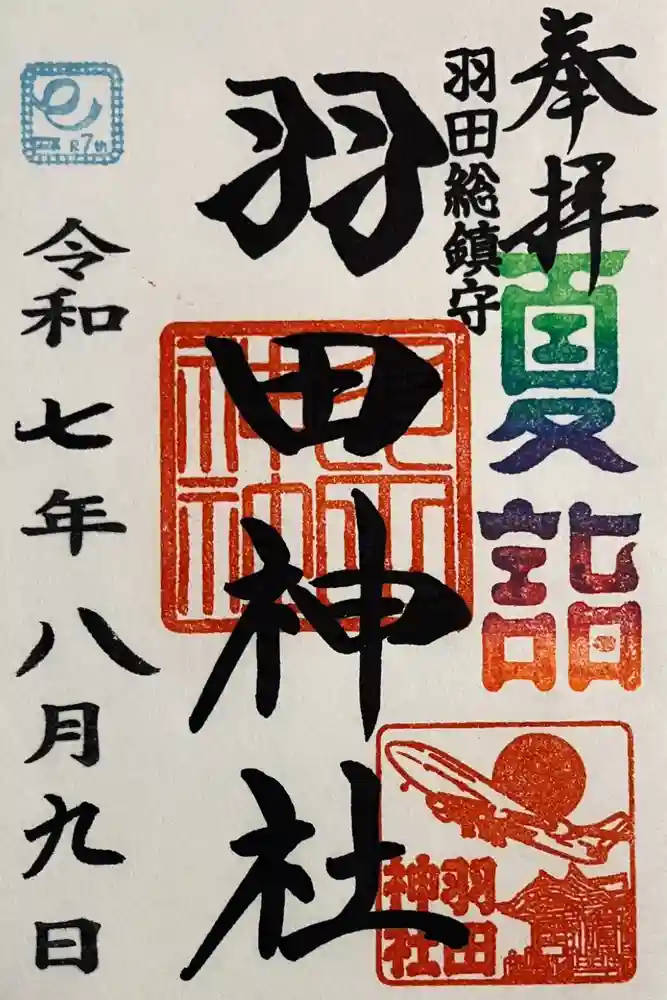 奉拝
羽田総鎮守
夏詣
羽田神社
羽田
神社
R7th
令和七年八月九日